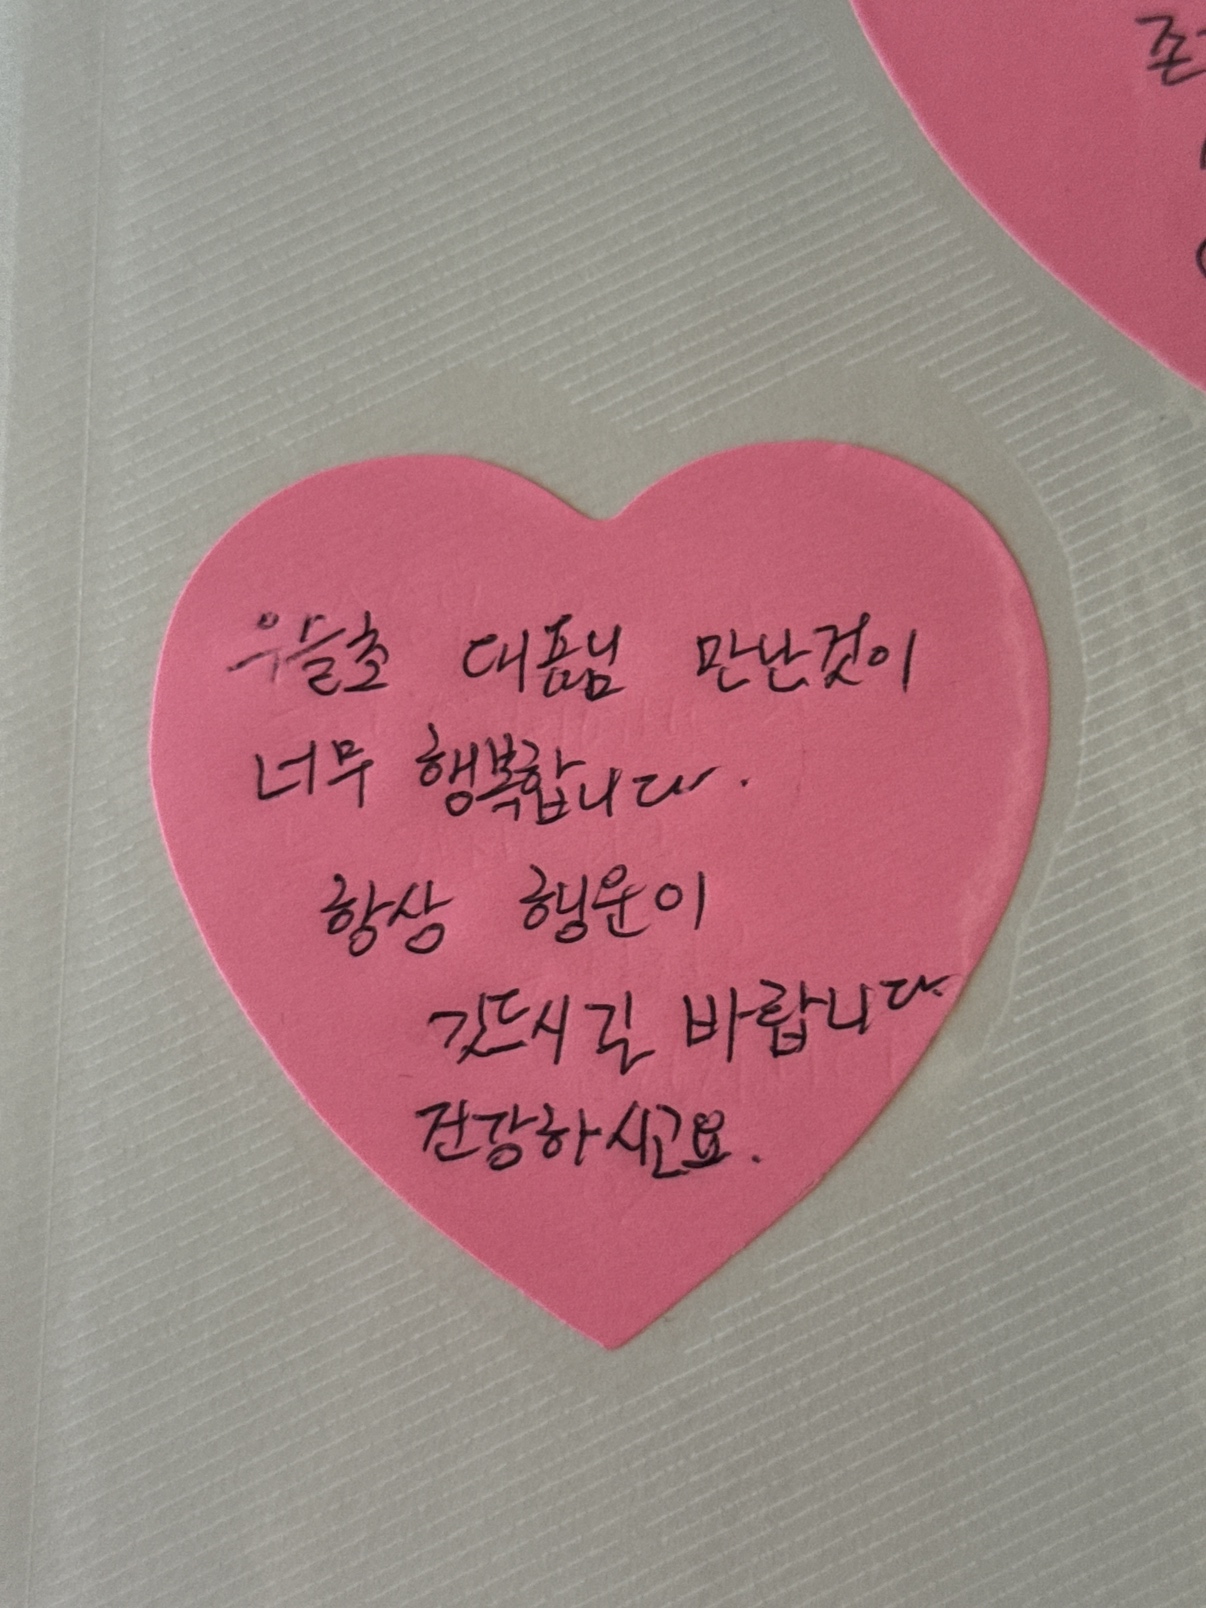 존
우슬초 대표님 만난것이
너무 행복합니다.
항상 행운이
깃드시길 바랍니다
건강하시고요.